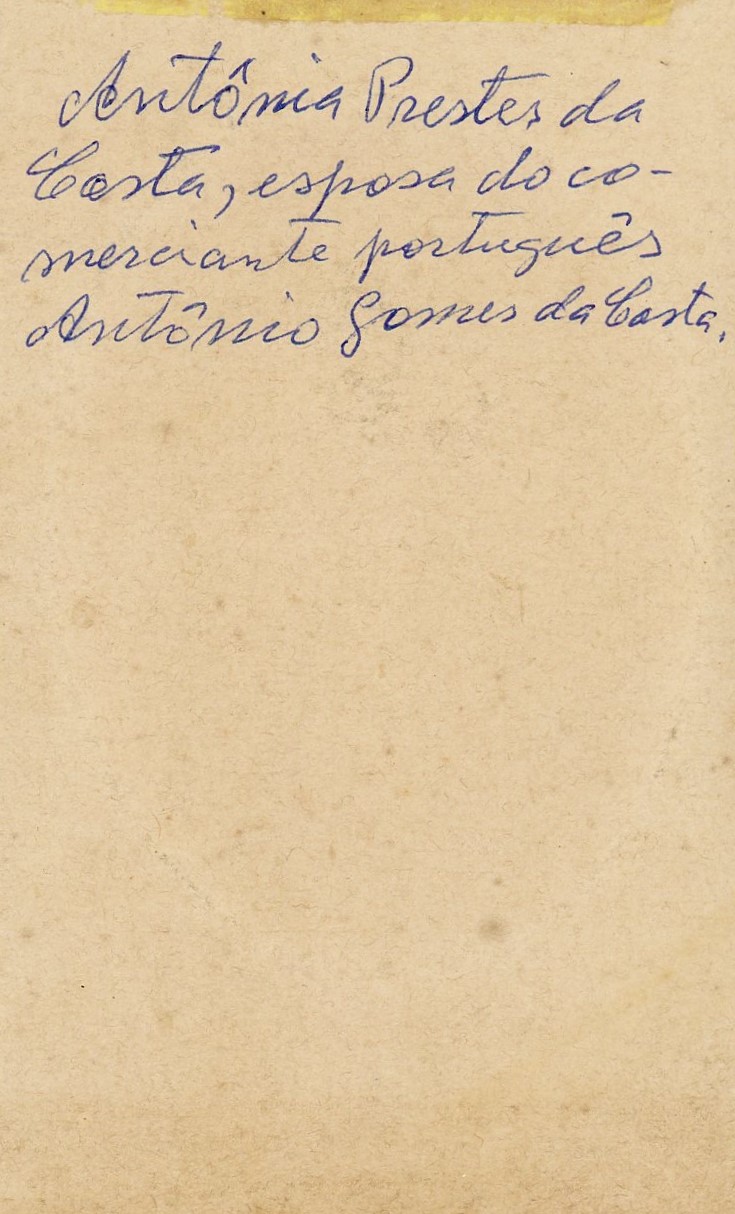 Antônia Prestes da
Costa, esposa do co-
merciante português
Antônio Gomes da Costa.